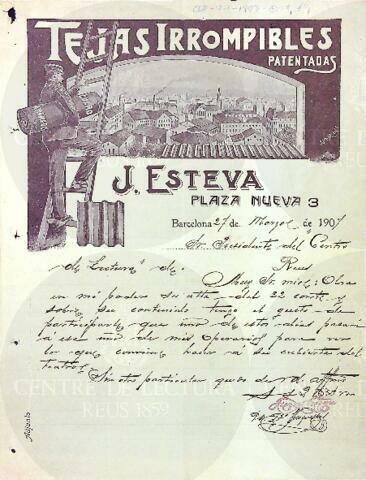 TEJAS IRROMPIBLES
PATENTADAS
J. ESTEVA
PLAZA NUEVA 3
Barcelona 27 de Marzo de 1907
Sr. Presidente del "Centro
de Lectura" de Reus
Muy Sr. mio: Obra
en mi poder su atta. del 22 corrte. y
sobre su contenido tengo el gusto de
participarle que uno de estos dias pasará
a esa uno de mis operarios para ver
lo que conviene hacer a su cubierta del
teatro.
Sin otro particular quedo de Vd. affmo.
CENTRE DE LECTURA
REUS 1859